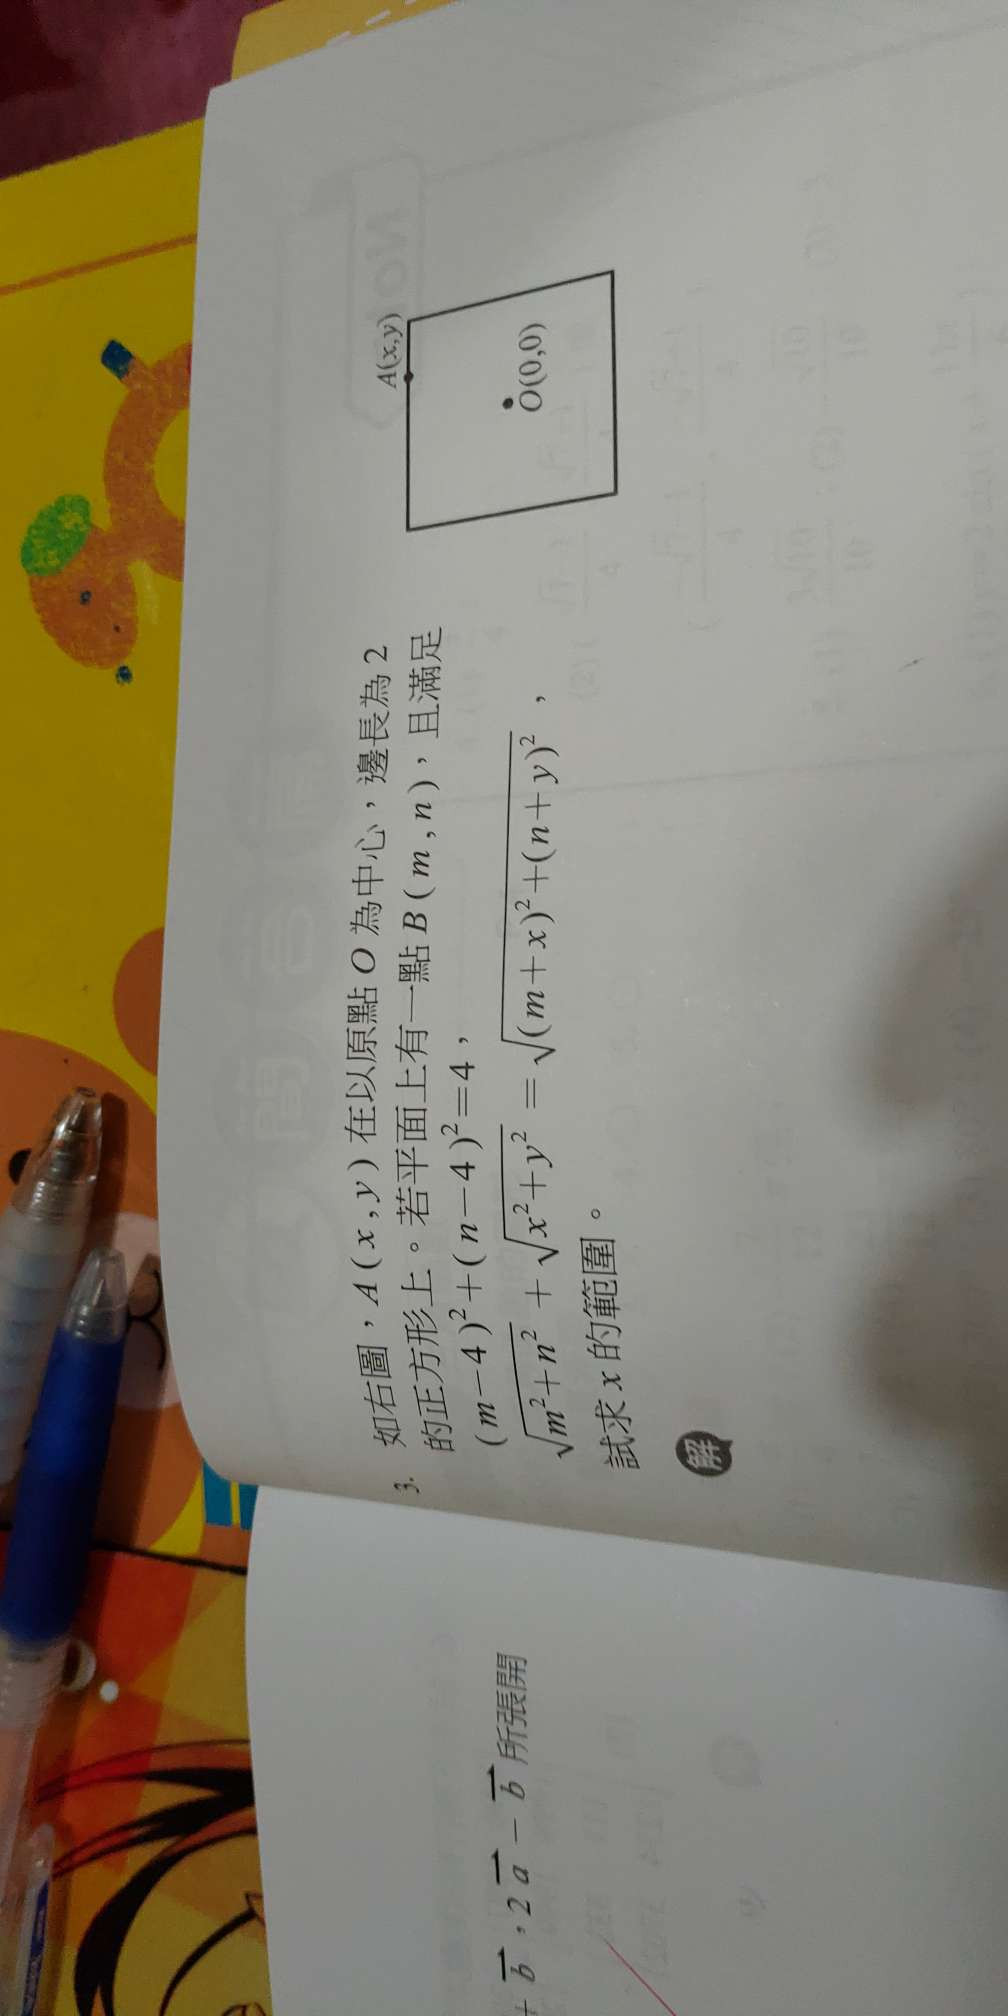 + b , 2 a − b 所張開
3. 如右圖，A ( x , y ) 在以原點 O 為中心，邊長為 2
的正方形上。若平面上有一點 B ( m , n )，且滿足
( m − 4 )² + ( n − 4 )² = 4，
√(m² + n²) + √(x² + y²) = √((m + x)² + (n + y)²)，
試求 x 的範圍。
A(x,y)
O(0,0)
解